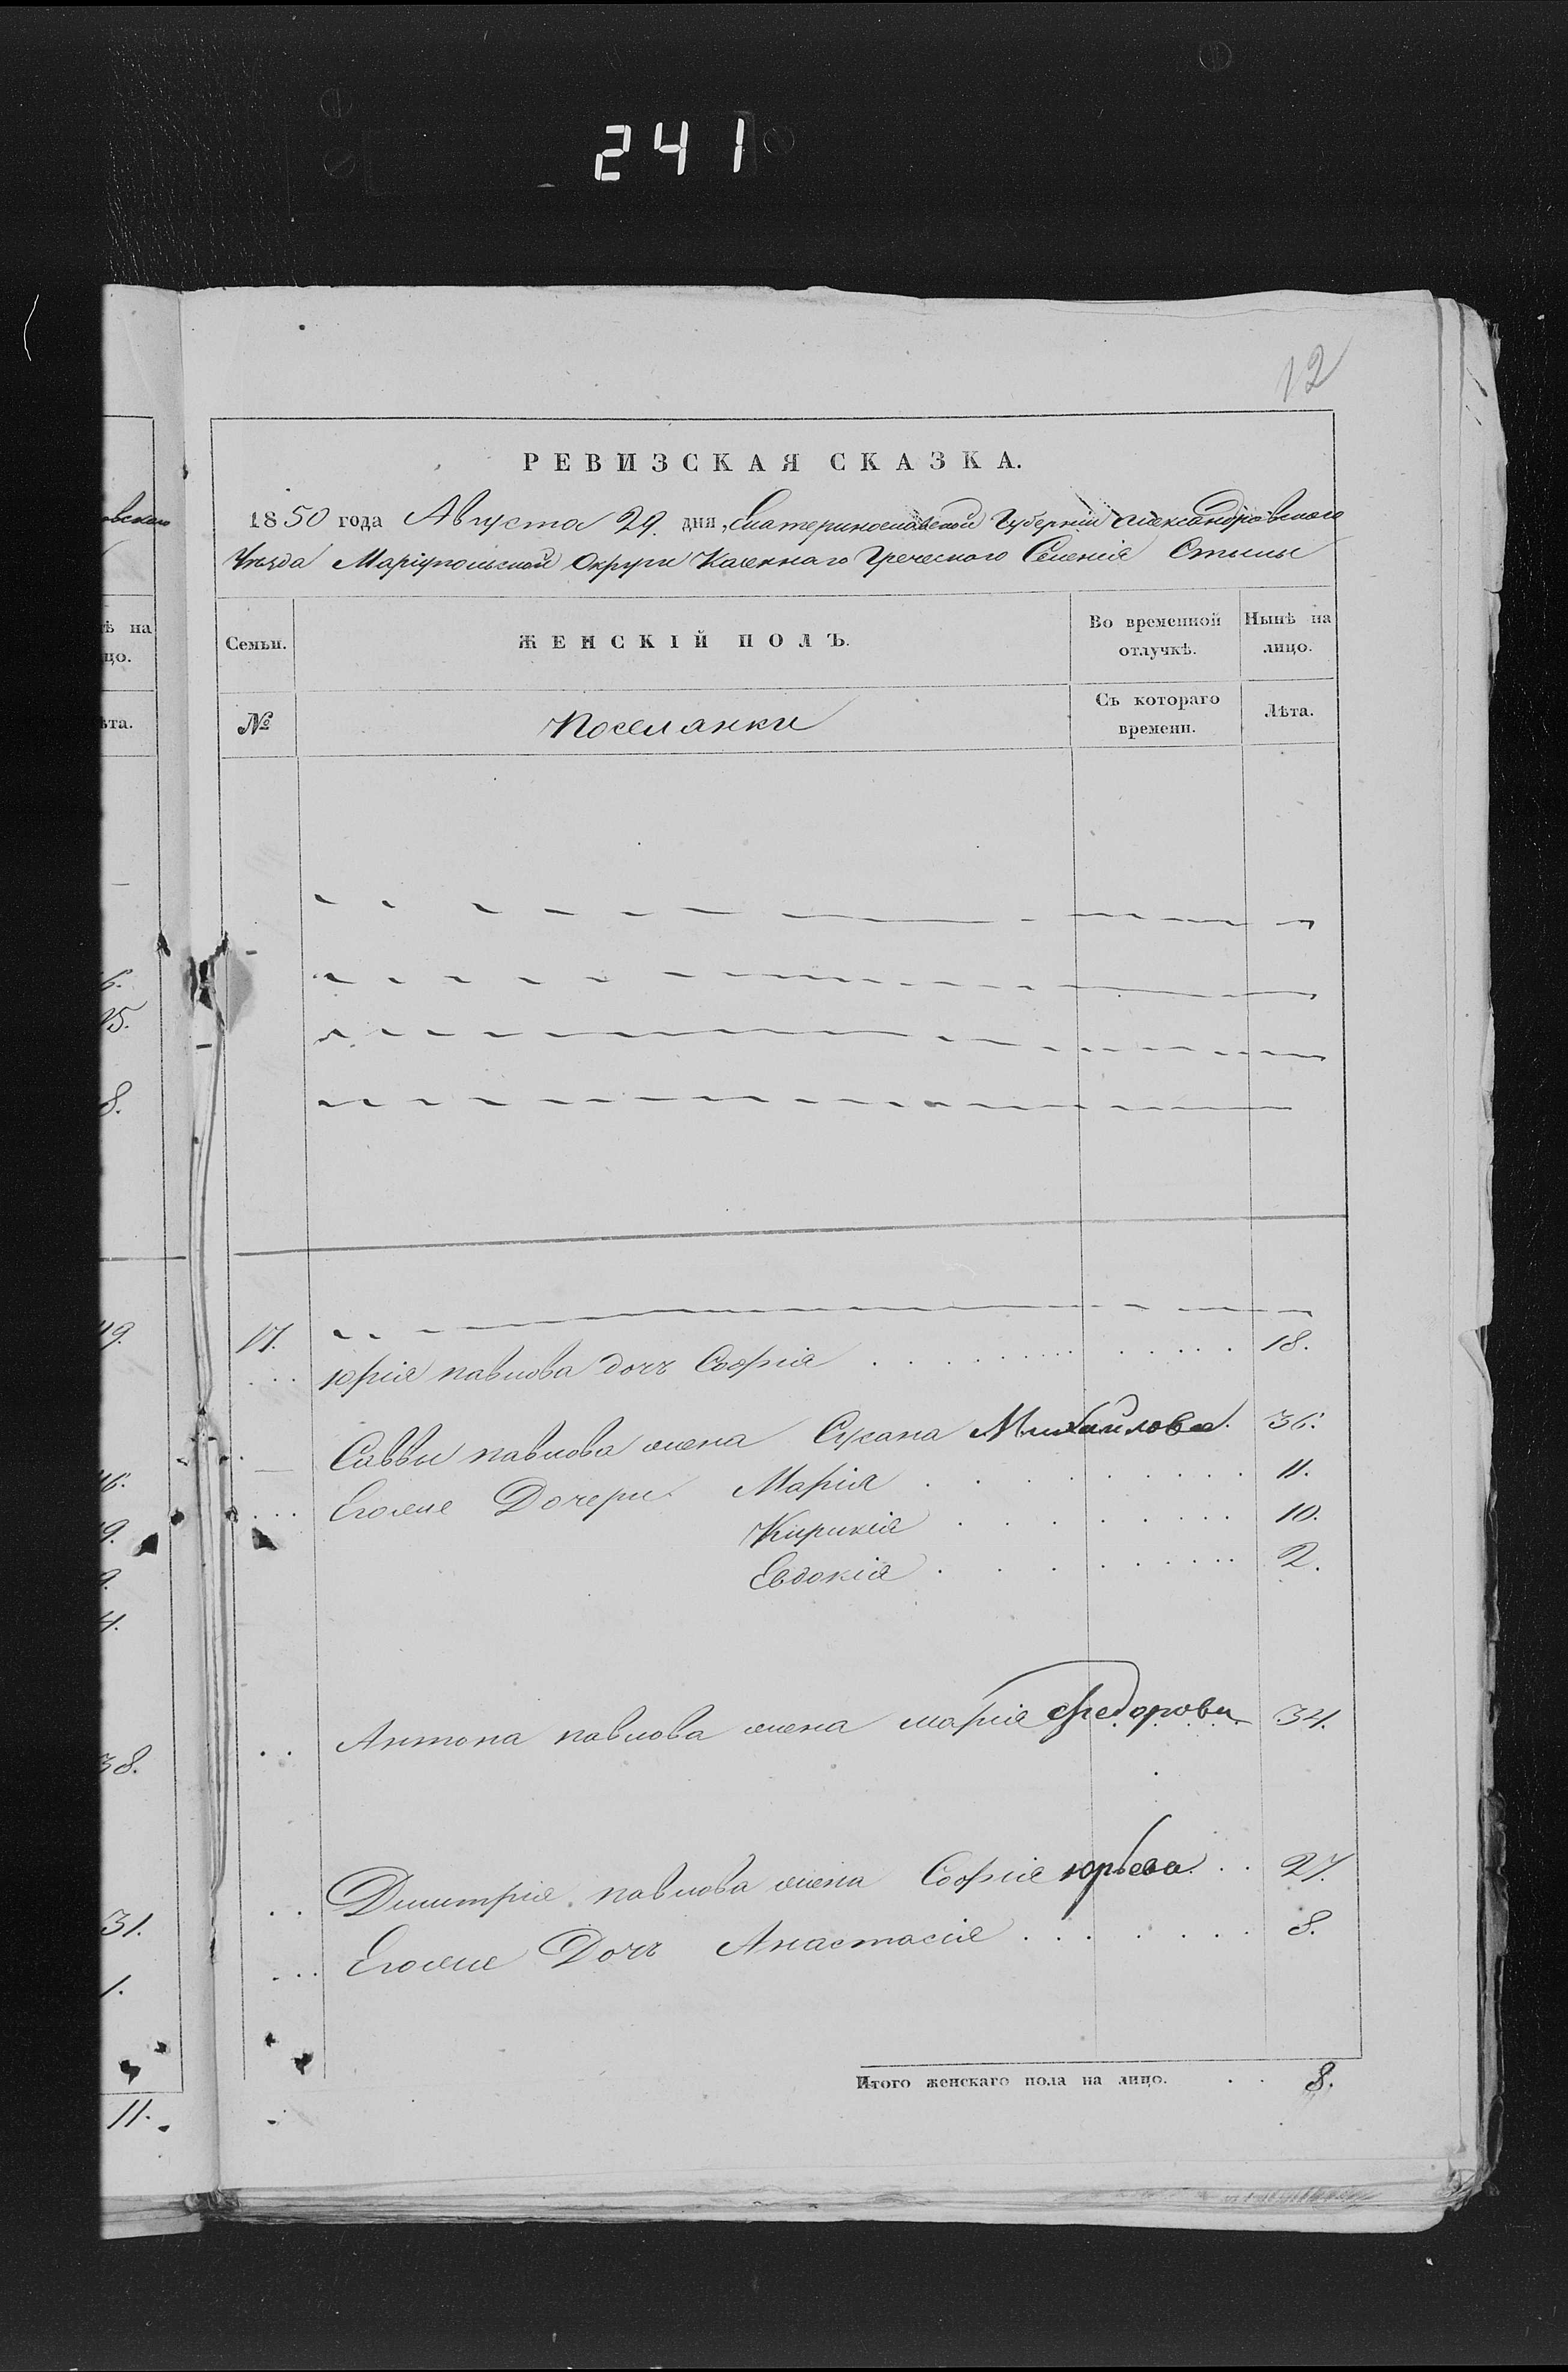 241
12
РЕВИЗСКАЯ СКАЗКА.
1850 года Августа 29. дня, Екатеринославской Губернии Александровского
Уѣзда Маріупольской Округи Казеннаго Греческого Селенія Стилы
Семьи.
ЖЕНСКІЙ ПОЛЪ.
Во временной отлучкѣ.
Нынѣ на лицо.
№
Поселянки
Съ котораго времени.
Лѣта.
17.
Юрія павлова дочь Софія 18.
Саввы павлова жена Сусана Михайлова. 36.
Егоже Дочери Марія 11.
Кирикія 10.
Евдокія 2.
Антона павлова жена марія Федорова 34.
Димитрія павлова жена Софія юрьева 27.
Егоже Дочь Анастасія 8.
Итого женскаго пола на лицо. 8.
овского
ѣ на
цо.
ѣта.
6.
25.
8.
49.
16.
9.
9.
4.
38.
31.
1.
11.